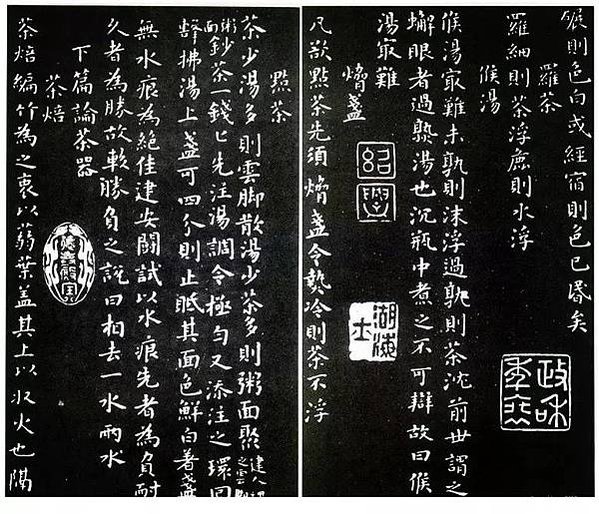 碾則色白或經宿則色已昏矣
羅茶
羅細則茶浮麁則水浮
候湯
候湯㝡難未孰則沫浮過孰則茶沈前世謂之
蠏眼者過孰湯也沉瓶中煮之不可辯故曰候
湯㝡難
熁盞
凡欲點茶先須熁盞令熱冷則茶不浮
紹興
政和
湖海
點茶
茶少湯多則雲脚散湯少茶多則粥面聚建人謂之雲
粥面鈔茶一錢匕先注湯調令極勻又添注之環回
擊拂湯上盞可四分則止眡其面色鮮白著盞
無水痕為絕佳建安鬪試以水痕先者為負耐
久者為勝故較勝負之說曰相去一水兩水
下篇論茶器
茶焙
茶焙編竹為之裹以蒻葉盖其上以収火也隔